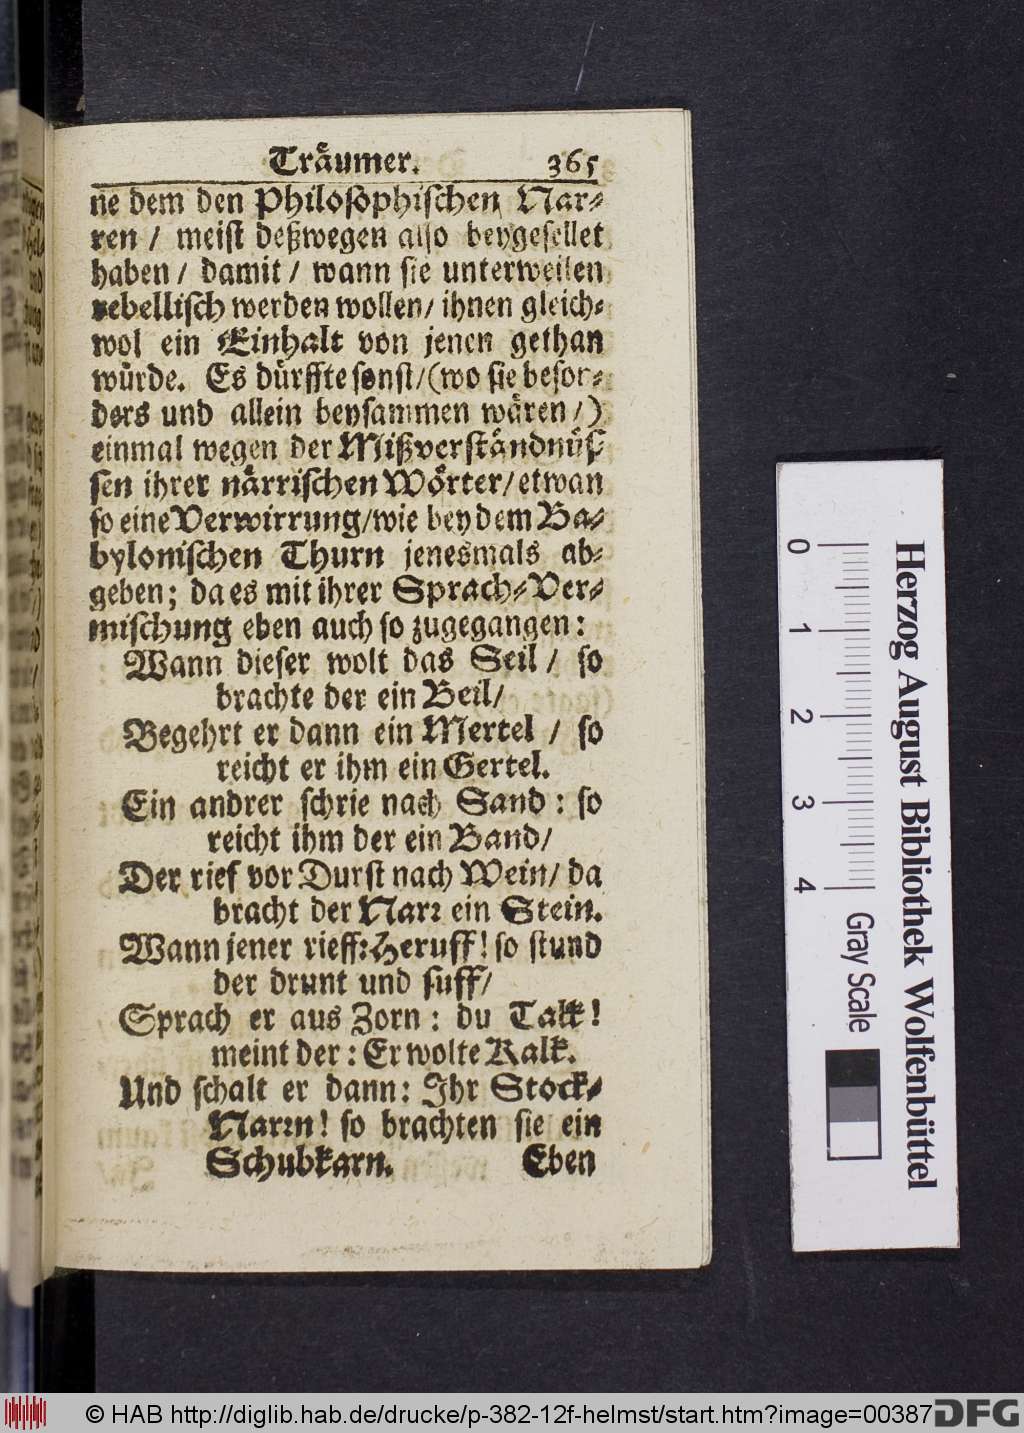 Träumer. 365
ne dem den Philosophischen Nar⸗
ren / meist deßwegen also beygesellet
haben / damit / wann sie unterweilen
rebellisch werden wollen / ihnen gleich⸗
wol ein Einhalt von jenen gethan
würde. Es dürffte sonst / (wo sie beson⸗
ders und allein beysammen wären /)
einmal wegen der Mißverständnüs
sen ihrer närrischen Wörter / etwan
so eine Verwirrung / wie bey dem Ba⸗
bylonischen Thurn jenesmals ab⸗
geben; da es mit ihrer Sprach⸗Ver⸗
mischung eben auch so zugegangen:
Wann dieser wolt das Seil / so
brachte der ein Beil /
Begehrt er dann ein Mertel / so
reicht er ihm ein Gertel.
Ein andrer schrie nach Sand : so
reicht ihm der ein Band /
Der rief vor Durst nach Wein / da
bracht der Narr ein Stein.
Wann jener rieff: Heruff! so stund
der drunt und suff /
Sprach er aus Zorn : du Talk!
meint der : Er wolte Kalk.
Und schalt er dann: Ihr Stock⸗
Narrn! so brachten sie ein
Schubkarn. Eben
0 1 2 3 4
Gray Scale
Herzog August Bibliothek Wolfenbüttel
© HAB http://diglib.hab.de/drucke/p-382-12f-helmst/start.htm?image=00387
DFG